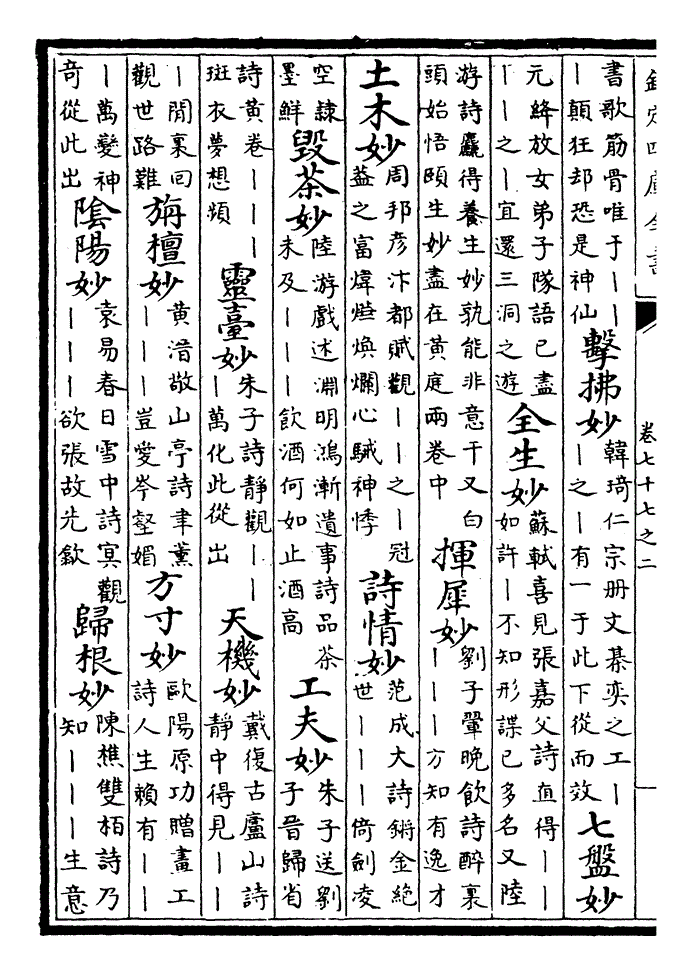 欽定四庫全書
卷七十七之二
書歌筋骨唯于丨丨
丨顛狂却恐是神仙
擊拂妙
韓琦仁宗冊文棊奕之工丨
丨之丨有一于此下從而效
七盤妙
元絳放女弟子隊語已盡
丨丨之丨宜還三洞之遊
全生妙
蘇軾喜見張嘉父詩直得丨丨
如許丨不知形諜已多名又陸
游詩麤得養生妙孰能非意干又白
頭始悟頤生妙盡在黃庭兩卷中
揮犀妙
劉子翬晚飲詩醉裏
丨丨丨方知有逸才
土木妙
周邦彦汴都賦觀丨丨之丨冠
葢之富煒燁煥爛心駴神悸
詩情妙
范成大詩鏘金絶
世丨丨丨倚劍凌
空隷
墨鮮
毀茶妙
陸游戲述淵明鴻漸遺事詩品茶
未及丨丨丨飲酒何如止酒高
工夫妙
朱子送劉
子晉歸省
詩黃卷丨丨丨
斑衣夢想頻
靈臺妙
朱子詩靜觀丨丨
丨萬化此從出
天機妙
戴復古廬山詩
靜中得見丨丨
丨閒裏回
觀世路難
旃檀妙
黃溍敬山亭詩聿薰
丨丨丨豈愛岑壑媚
方寸妙
歐陽原功贈畫工
詩人生賴有丨丨
丨萬變神
奇從此出
陰陽妙
袁易春日雪中詩冥觀
丨丨丨欲張故先歙
歸根妙
陳樵雙栢詩乃
知丨丨丨生意